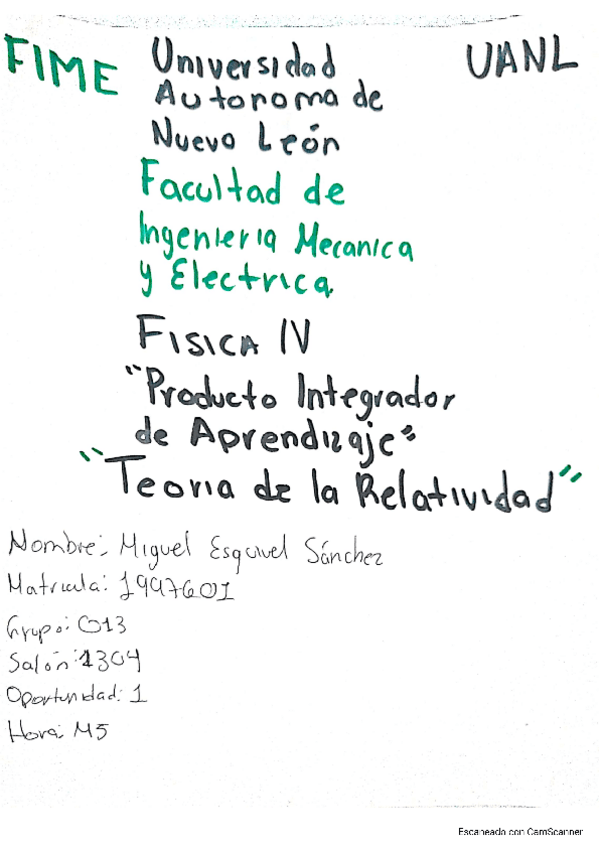 FIME
UANL
Universidad
Autonoma de
Nuevo León
Facultad de
Ingenieria Mecanica
y Electrica
FISICA IV
"Producto Integrador
de Aprendizaje"
"Teoria de la Relatividad"
Nombre: Miguel Esquivel Sánchez
Matricula: 1997601
Grupo: 013
Salón: 1304
Oportunidad: 1
Hora: M5
Escaneado con CamScanner